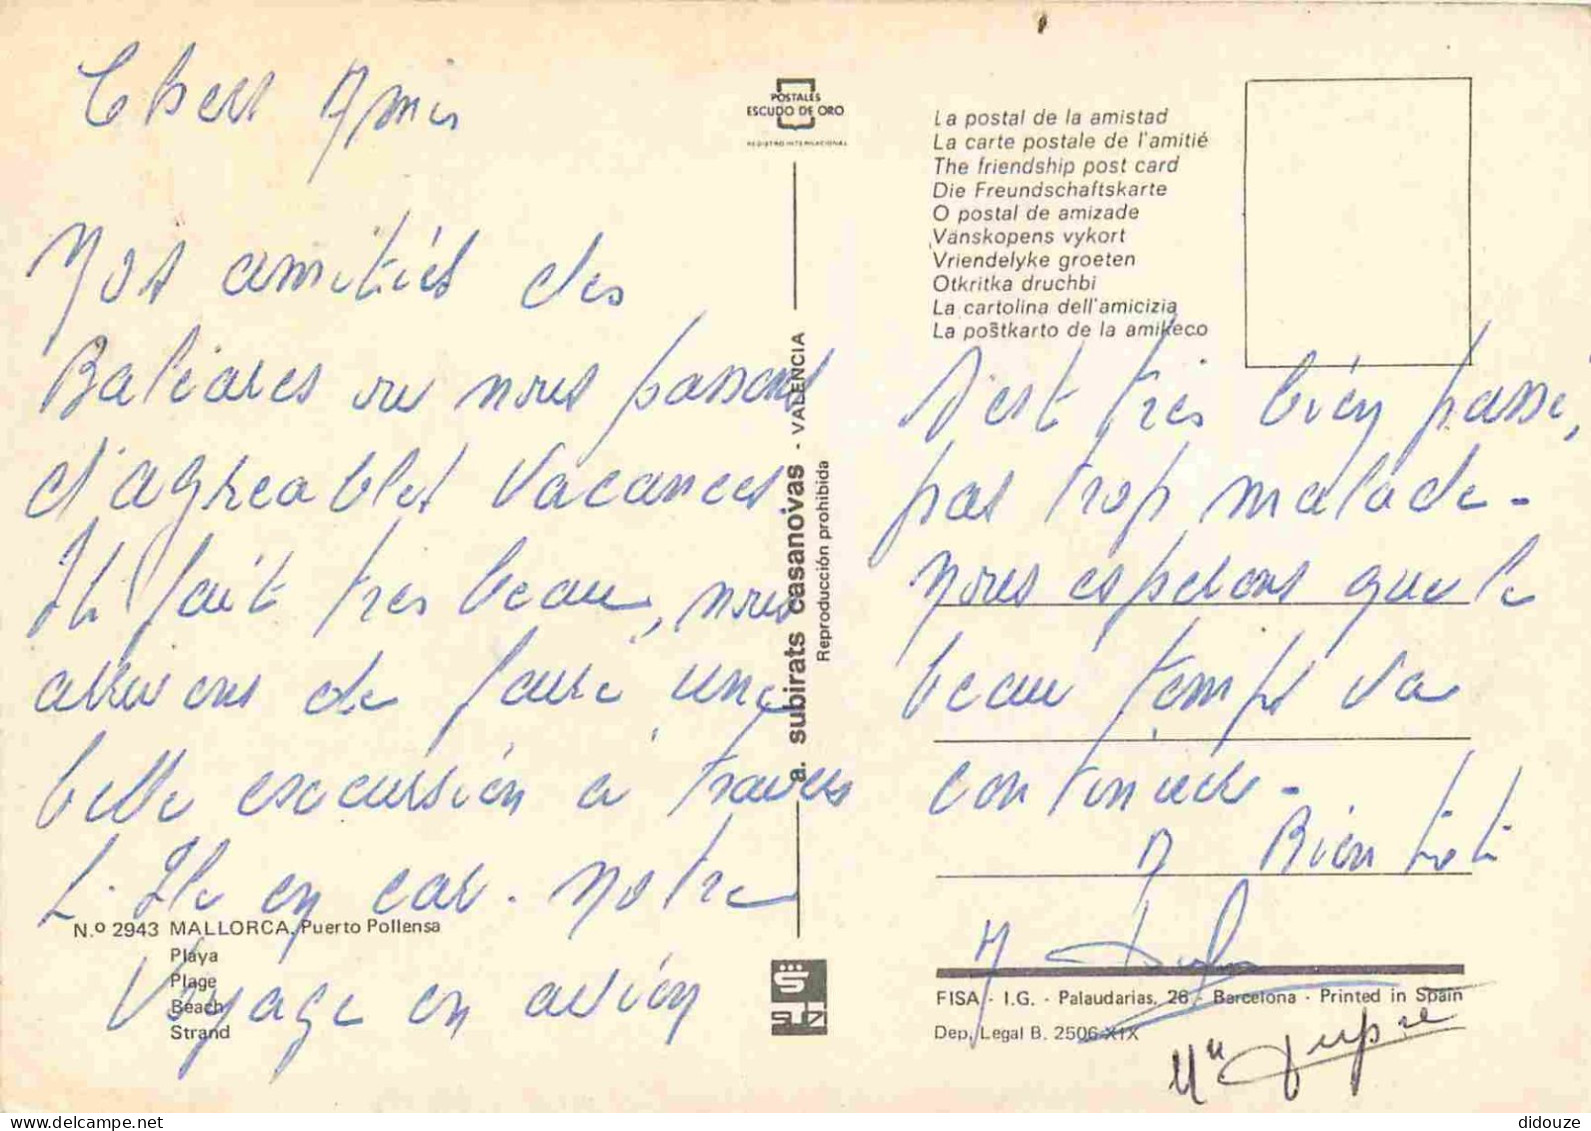 Chers Amis
Nos amitiés des
Baléares ou nous passons
d'agreables vacances
Il fait tres beau, nous
arrivons de faire une
belle excursion a travers
L'Ile en car. Notre
Voyage en avion
POSTALES
ESCUDO DE ORO
REGISTRO INTERNACIONAL
a. subirats casanoivas - VALENCIA
Reproducción prohibida
N.º 2943 MALLORCA. Puerto Pollensa
Playa
Plage
Beach
Strand
La postal de la amistad
La carte postale de l'amitié
The friendship post card
Die Freundschaftskarte
O postal de amizade
Vänskopens vykort
Vriendelyke groeten
Otkritka druchbi
La cartolina dell'amicizia
La poŝtkarto de la amikeco
s'est tres bien passé,
pas trop malade -
nous esperons que le
beau temps va
continuer -
A Bientôt
FISA - I.G. - Palaudarias, 26 - Barcelona - Printed in Spain
Dep. Legal B. 2506-XIX
didouze